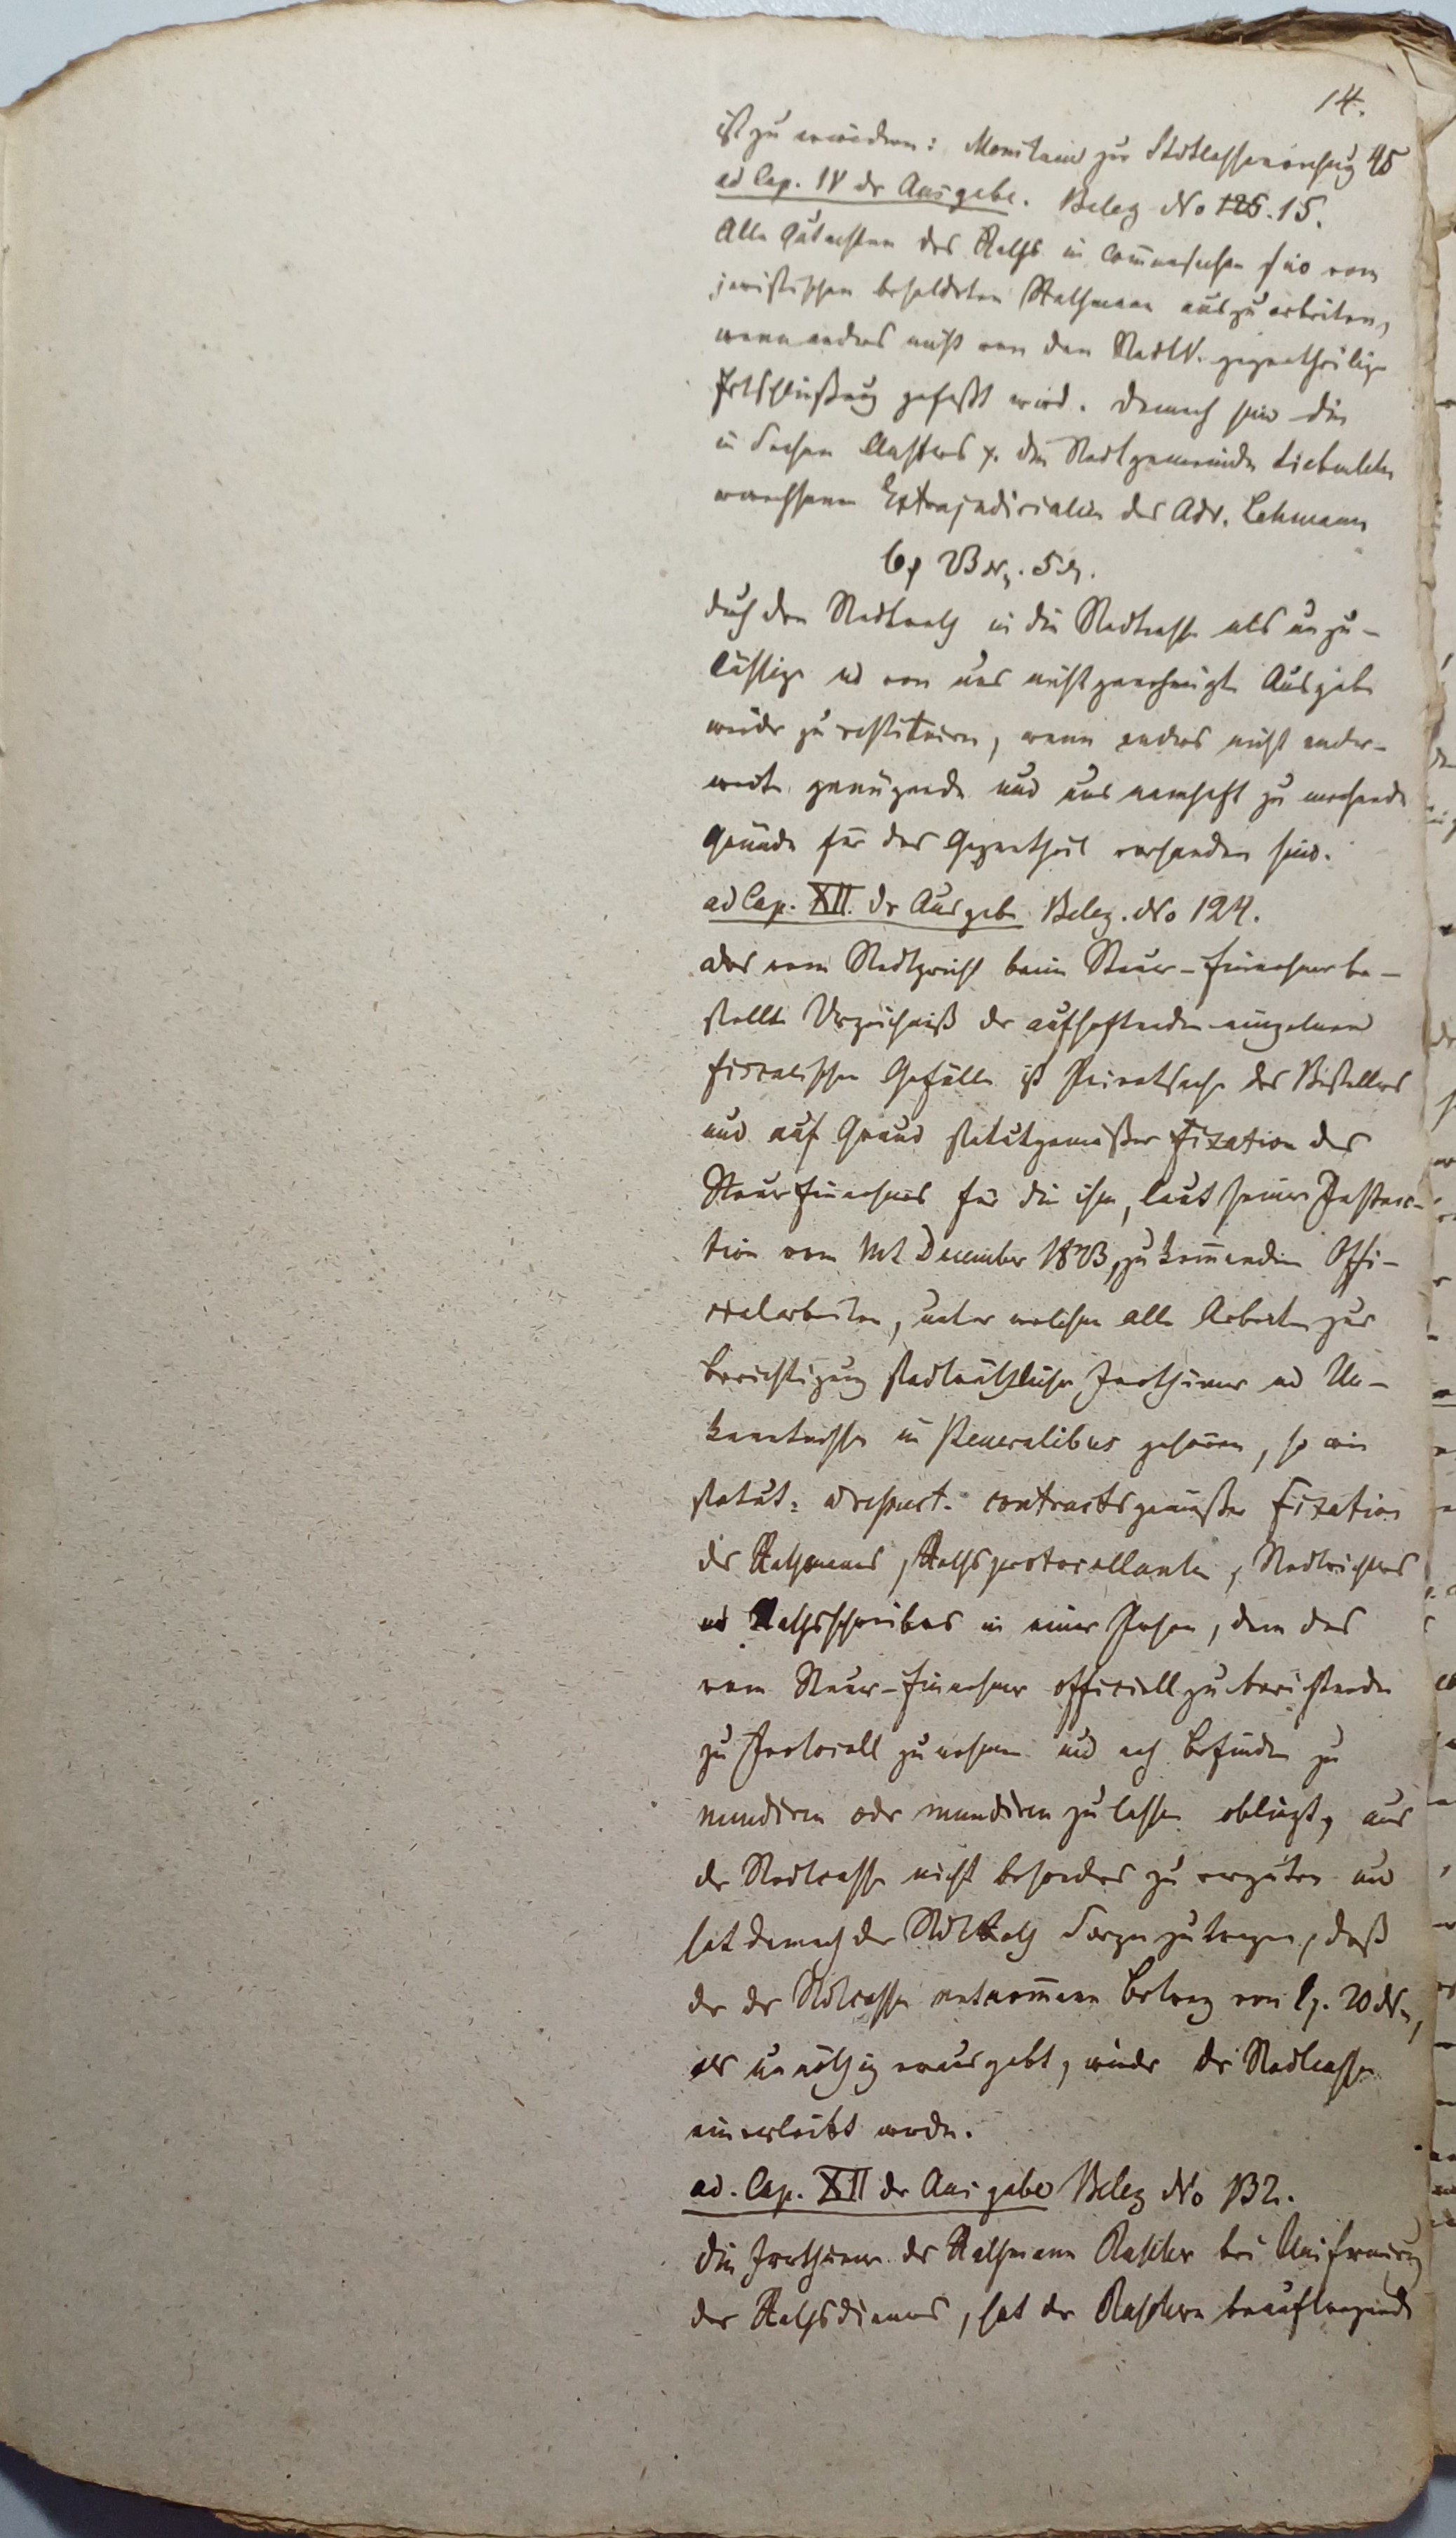 14.
ist zu erwiedern: Monitum zur Stdtkassenrechnung 45
ad Cap. IV der Ausgabe. Beleg No 15.
Alle Gutachten des Raths in Communsachen sind vom
juristischen besoldeten Rathmann auszuarbeiten,
wenn anders nicht von den StadtV. gegentheilige
Entschließung gefaßt wird. Demnach sind die
in Sachen Clauss's ./. die Stadtgemeinde Siebenlehn
erwachsenen Extrajudicialien des Adv. Lehmann
durch den Stadtrath in die Stadtcasse als unzu-
lässige und von uns nicht genehmigte Ausgabe
wieder zu restituiren, wenn anders nicht ander-
weite genügende und uns namhaft zu machende
Gründe für das Gegentheil vorhanden sind.
ad Cap. XII. der Ausgabe Beleg. No 124.
Das vom Stadtgericht beim Steuer-Einnehmer be-
stellte Verzeichniß der aufhaftenden einzelnen
fiscalischen Gefälle ist Privatsache des Bestellers
und auf Grund statutgemäßer Fixation des
Steuereinnehmers für die ihm, laut seiner Instruc-
tion vom December zukommenden Offi-
cialarbeiten, unter welchen alle Arbeiten zur
Berichtigung stadträthlicher Irrthümer und Un-
kenntnisse in Steueralibus gehören, so wie
statut- und respect. contractsgemäßer Fixation
des Rathmanns, Rathsprotocollanten, Stadtrichters
und Rathsschreibers in einer Person, dem das
vom Steuer-Einnehmer officiell zu berichtende
zu Protocoll zu nehmen und nach Befinden zu
mundiren oder mundiren zu lassen obliegt, aus
der Stadtcasse nicht besonders zu vergüten und
hat demnach der Stdtrath Sorge zu tragen, daß
der der Stdtcasse entnommene Betrag von 20 Nr,
als unnöthig verausgabt, wieder der Stadtcasse
einverleibt werde.
ad. Cap. XII der Ausgabe Beleg No 132.
Die Irrthümer des Rathmann Raschke bei Uniformirung
des Rathsdieners, hat der Raschken beauftragende